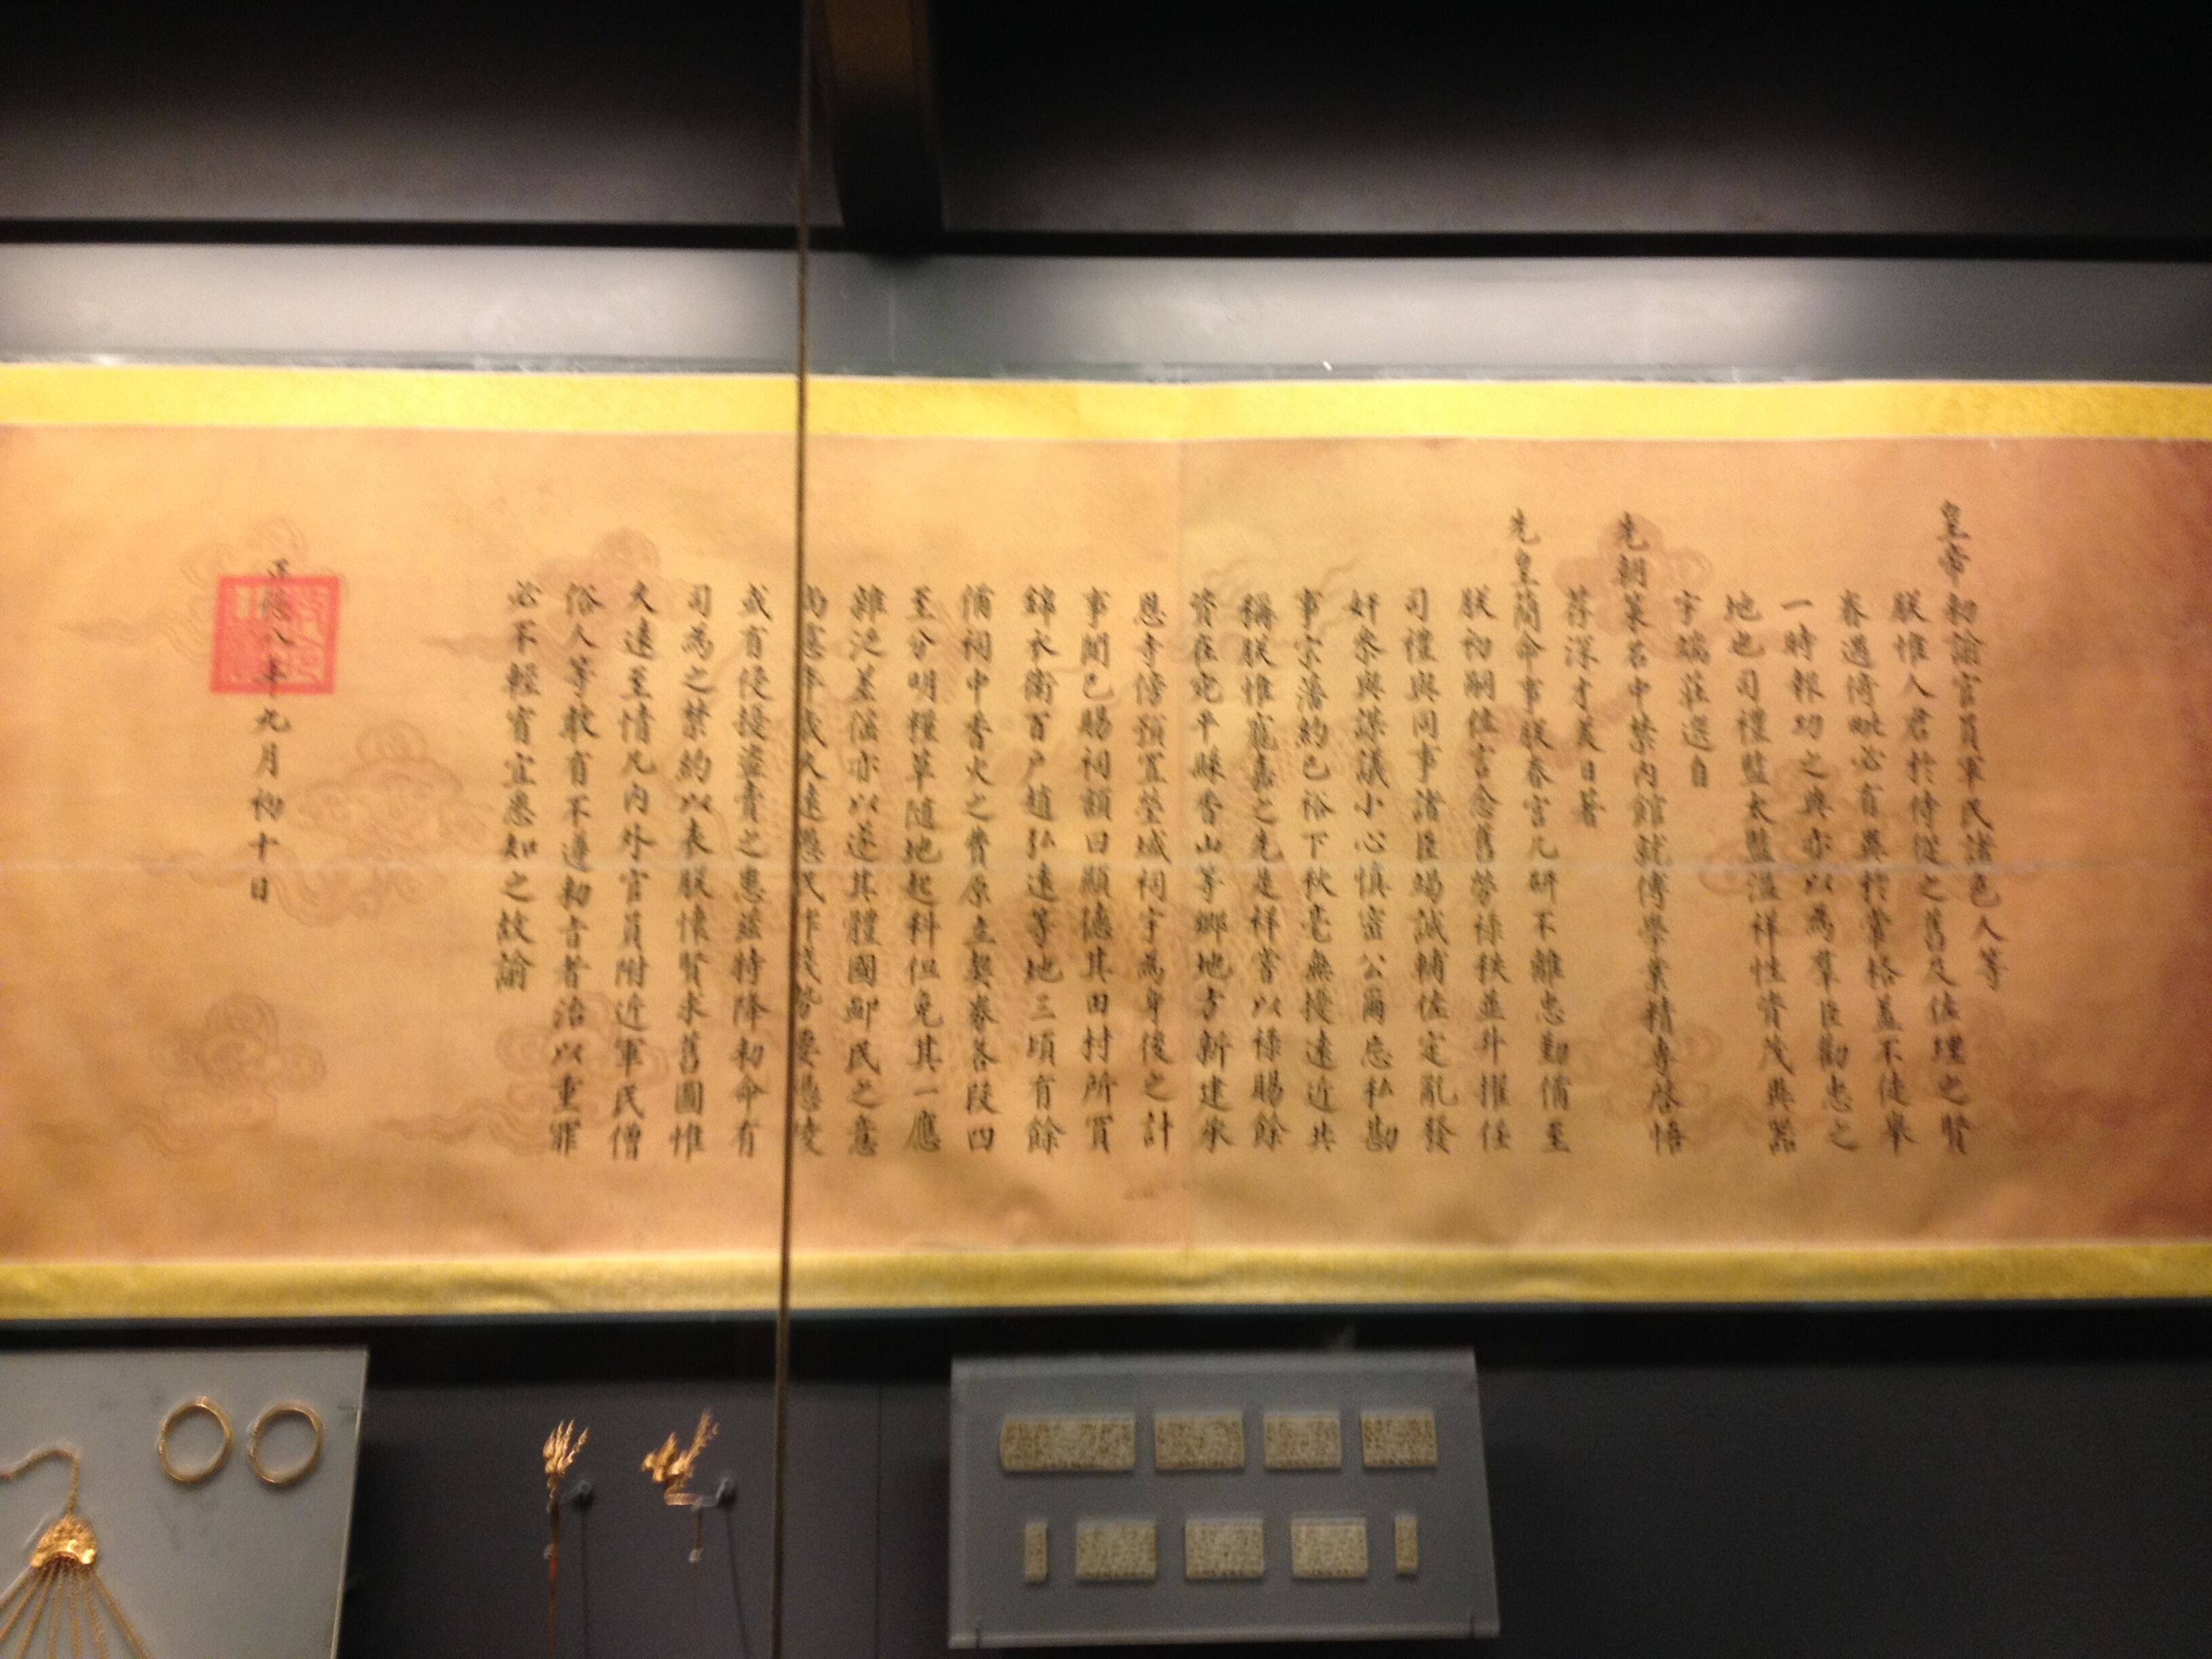 皇帝敕諭官員軍民諸色人等
朕惟人君於侍從之舊及佐理之賢
眷遇倚毗必有異於常格蓋不徒舉
一時報功之典亦以為羣臣勸忠之
地也司禮監太監溫祥性資茂異器
宇端莊選自
先朝策名中禁內館就傅學業精專啓悟
荐深才美日著
先皇簡命事朕春宮凡研不離忠勤備至
朕初嗣位言念舊勞祿秩並升擢任
司禮與同事諸臣竭誠輔佐定亂發
奸參與謀議小心慎密公爾忘私勘
事宗藩約己裕下秋毫無擾遠近共
稱朕惟寵嘉之先是祥嘗以祿賜餘
資在宛平縣香山等鄉地方新建承
恩寺傍預置塋域祠宇為身後之計
事聞已賜祠額曰顯德其田村所買
錦衣衛百戶趙弘遠等地三頃有餘
備祠中香火之費原立契券各段四
至分明糧草隨地起科但免其一應
雜泛差徭亦以遂其體國邮民之意
尚慮年歲久遠
或有侵擾盜賣之患茲特降敕命有
司為之禁約以表朕懷賢求舊圖惟
久遠至情凡內外官員附近軍民僧
俗人等敢有不遵敕旨者治以重罪
必不輕宥宜悉知之故諭
正德八年九月初十日